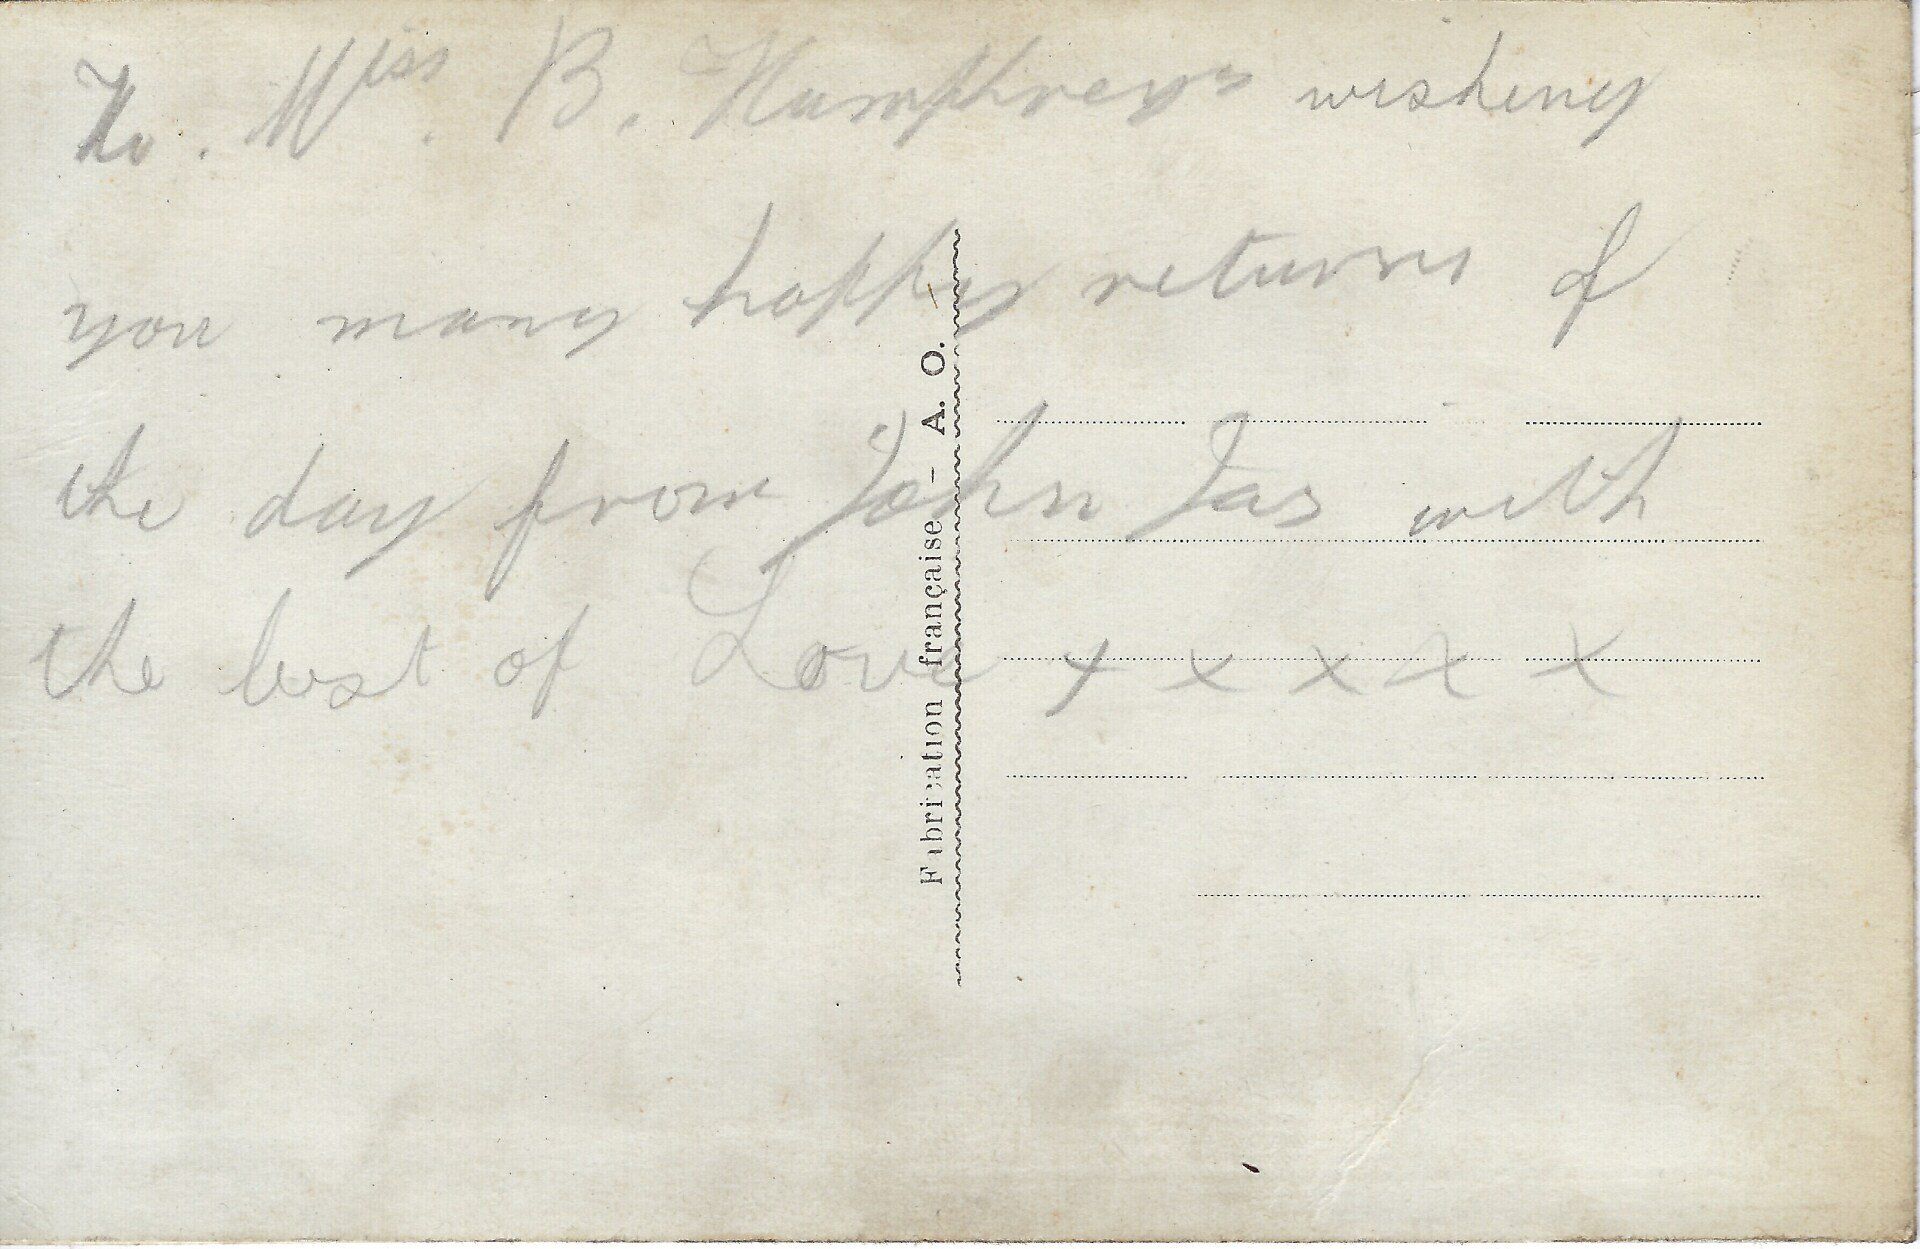 To. Miss. B. Humphreys wishing
you many happy returns of
the day from John Jas with
the best of Love x x x x x
Fabrication française - A. O.